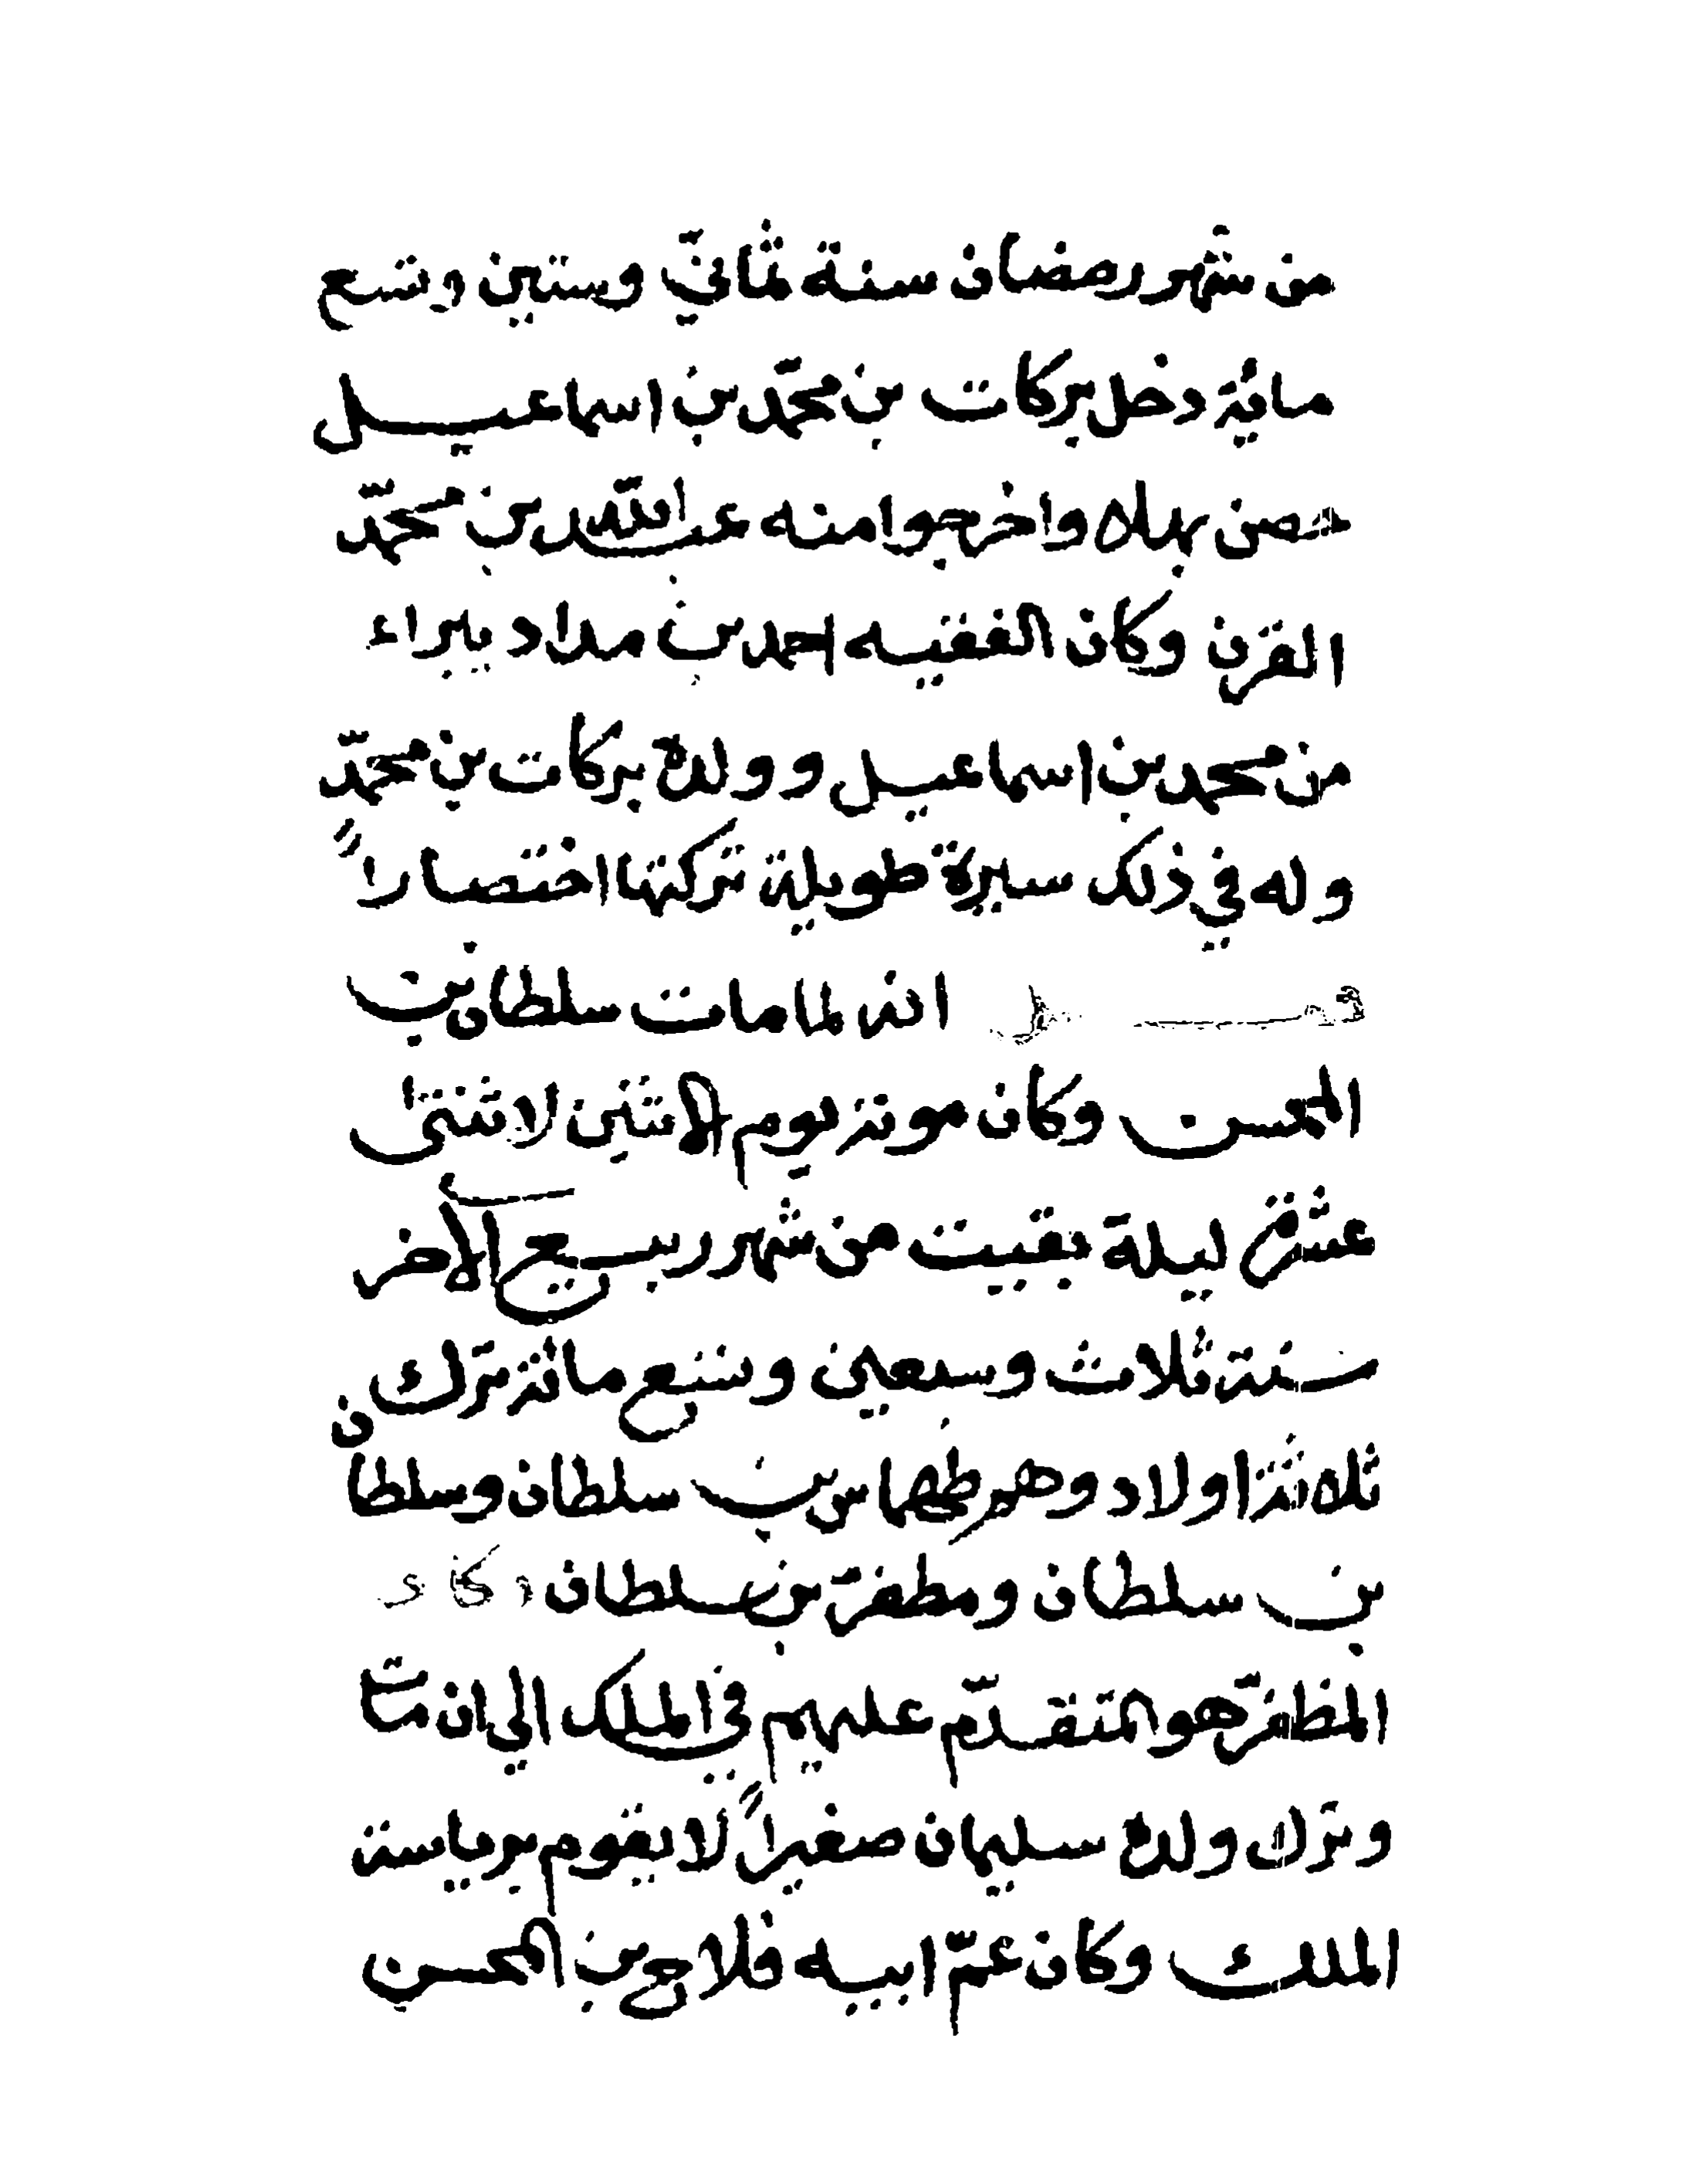 من شهر رمضان سنة ثماني وستين وتسع
مائة دخل بركات بن محمّد بن اسماعيل
حصن بهلاه واخرجوا منه عبدالله بن محمّد
القرن وكان الفقيه احمد بن مداد يبراء
من محمد بن اسماعيل و ولده بركات بن محمّد
وله في ذلك سيرة طويلة تركتها اختصاراً
انه لما مات سلطان بن
المحسن وكان موته يوم الاثنين لاثنتى
عشرة ليلة بقيت من شهر ربيع الآخر
سنة ثلاث وسبعين وتسع مائة ترك
ثلاثة اولاد وهم طهماس بن سلطان وسلطان
بن سلطان ومظفر بن سلطان وكان
المظفّر هو المتقدّم عليهم في الملك الي ان مات
وترك ولده سليمان صغيراً لا يقوم برياسة
الملك وكان عمّ ابيه فلاح بن المحسن